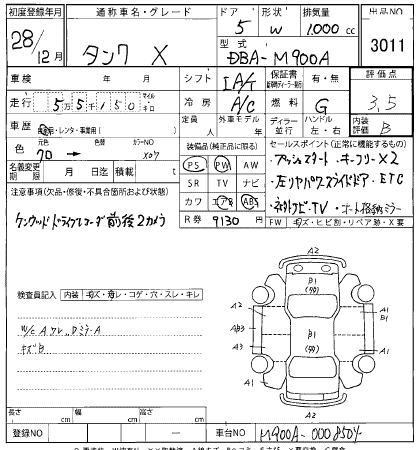 初度登録年月 通称車名・グレード ドア 形状 排気量 出品NO
28年12月 タンク X 5 W 1.000 cc 3011
型式 DBA-M900A
車検 年 月 シフト IAT 保証書 有・無 評価点
走行 5万5千150 キロ 冷房 A/C 燃料 G 3.5
車歴 自家用・レンタ・事業用( ) 定員 外車モデル ディーラー 並行 ハンドル 左・右 内装評価 B
色 カラーNO X07 装備品(純正品に限る) セールスポイント(正常に機能するもの)
PS PW AW プッシュスタート キーフリーX2
名義変更期限 月 日迄 積載 SR TV ナビ 左リヤパワースライドドア・ETC
注意事項(欠品・修復・不具合箇所および状態) カワ エアB ABS TV・オート格納ミラー
R券 9130 円 FW キズ・ヒビ割・リペア跡・X要
ケンウッドドライブレコーダ前後2カメラ
検査員記入 内装・キズ・汚レ・コゲ・穴・スレ・キレ
W/C A ワレ、DミラーA
キズB
A2
A2 A1 B1
AB3 B1 B1
A3 A1
A1
A2
長さ cm 幅 cm 高さ cm
登録NO ー 車台NO M900A-0008504